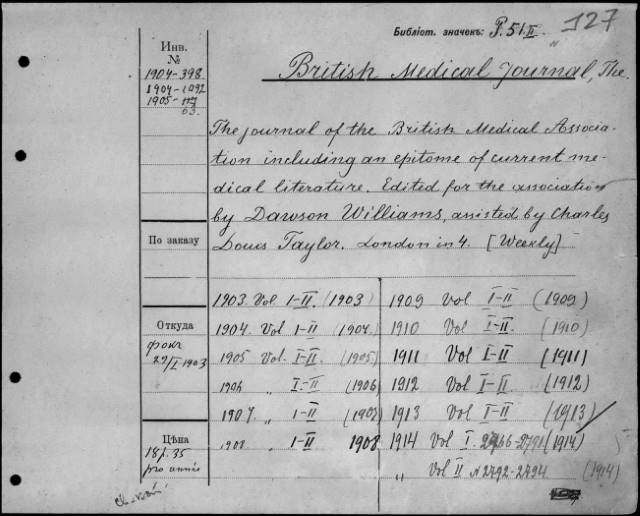 Библіот. значекъ: P. 51.II „ 127
Инв.
№
1904-398
1904-1092
1905-117
63.
British Medical Journal, The.
The journal of the British Medical Associa-
tion including an epitome of current me-
dical literature. Edited for the association
by Dawson Williams, assisted by Charles
Louis Taylor. London in 4. [Weekly]
По заказу
Откуда
29/I 1903
Цѣна
18р.35
pro anno
1903. Vol I-II. (1903)
1904. Vol I-II (1904.
1905 Vol. I-II (1905)
1906 I-II (1906)
1907. „ I-II (1907)
1908 „ I-II 1908
1909 Vol I-II (1909)
1910 Vol I-II. (1910)
1911 Vol I-II (1911)
1912 Vol I-II (1912)
1913 Vol I-II (1913)
1914 Vol I. 2766-2791 (1914)
„ Vol II N 2792-2794 (1914)